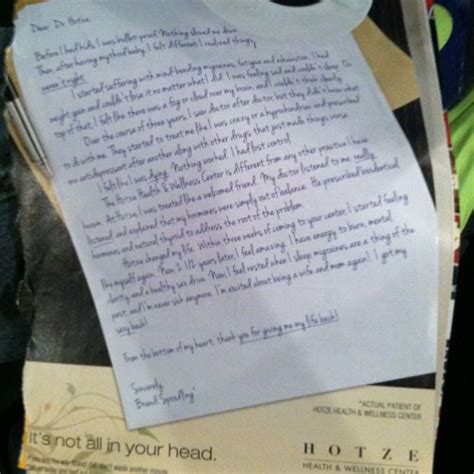 Dear Dr. Hotze,
Before I had kids, I was bullet-proof. Nothing slowed me down.
Then, after having my third baby, I felt different. I realized things
weren't right.
I started suffering with mind-bending migraines, fatigue and exhaustion. I had
weight gain and couldn't lose it no matter what I did. I was feeling sad and couldn't sleep. On
top of that, I felt like there was a fog or cloud over my brain, and I couldn't think clearly.
Over the course of three years, I saw doctor after doctor, but they didn't know what
to do with me. They started to treat me like I was crazy or a hypochondriac and prescribed
one antidepressant after another along with other drugs that just made things worse.
I felt like I was dying. Nothing worked. I had lost control.
The Hotze Health & Wellness Center is different from any other practice I have
known. At Hotze, I was treated like a welcomed friend. My doctor listened to me, really
listened, and explained that my hormones were simply out of balance. He prescribed bioidentical
hormones and natural thyroid to address the root of the problem.
Hotze changed my life. Within three weeks of coming to your center, I started feeling
like myself again. Now 2 1/2 years later, I feel amazing. I have energy to burn, mental
clarity, and a healthy sex drive. Now, I feel rested when I sleep, migraines are a thing of the
past, and I'm never sick anymore. I'm excited about being a wife and mom again! I got my
sexy back!
From the bottom of my heart, thank you for giving me my life back!
Sincerely,
Brandi
*ACTUAL PATIENT OF
HOTZE HEALTH & WELLNESS CENTER
it's not all in your head.
HOTZE
HEALTH & WELLNESS CENTER